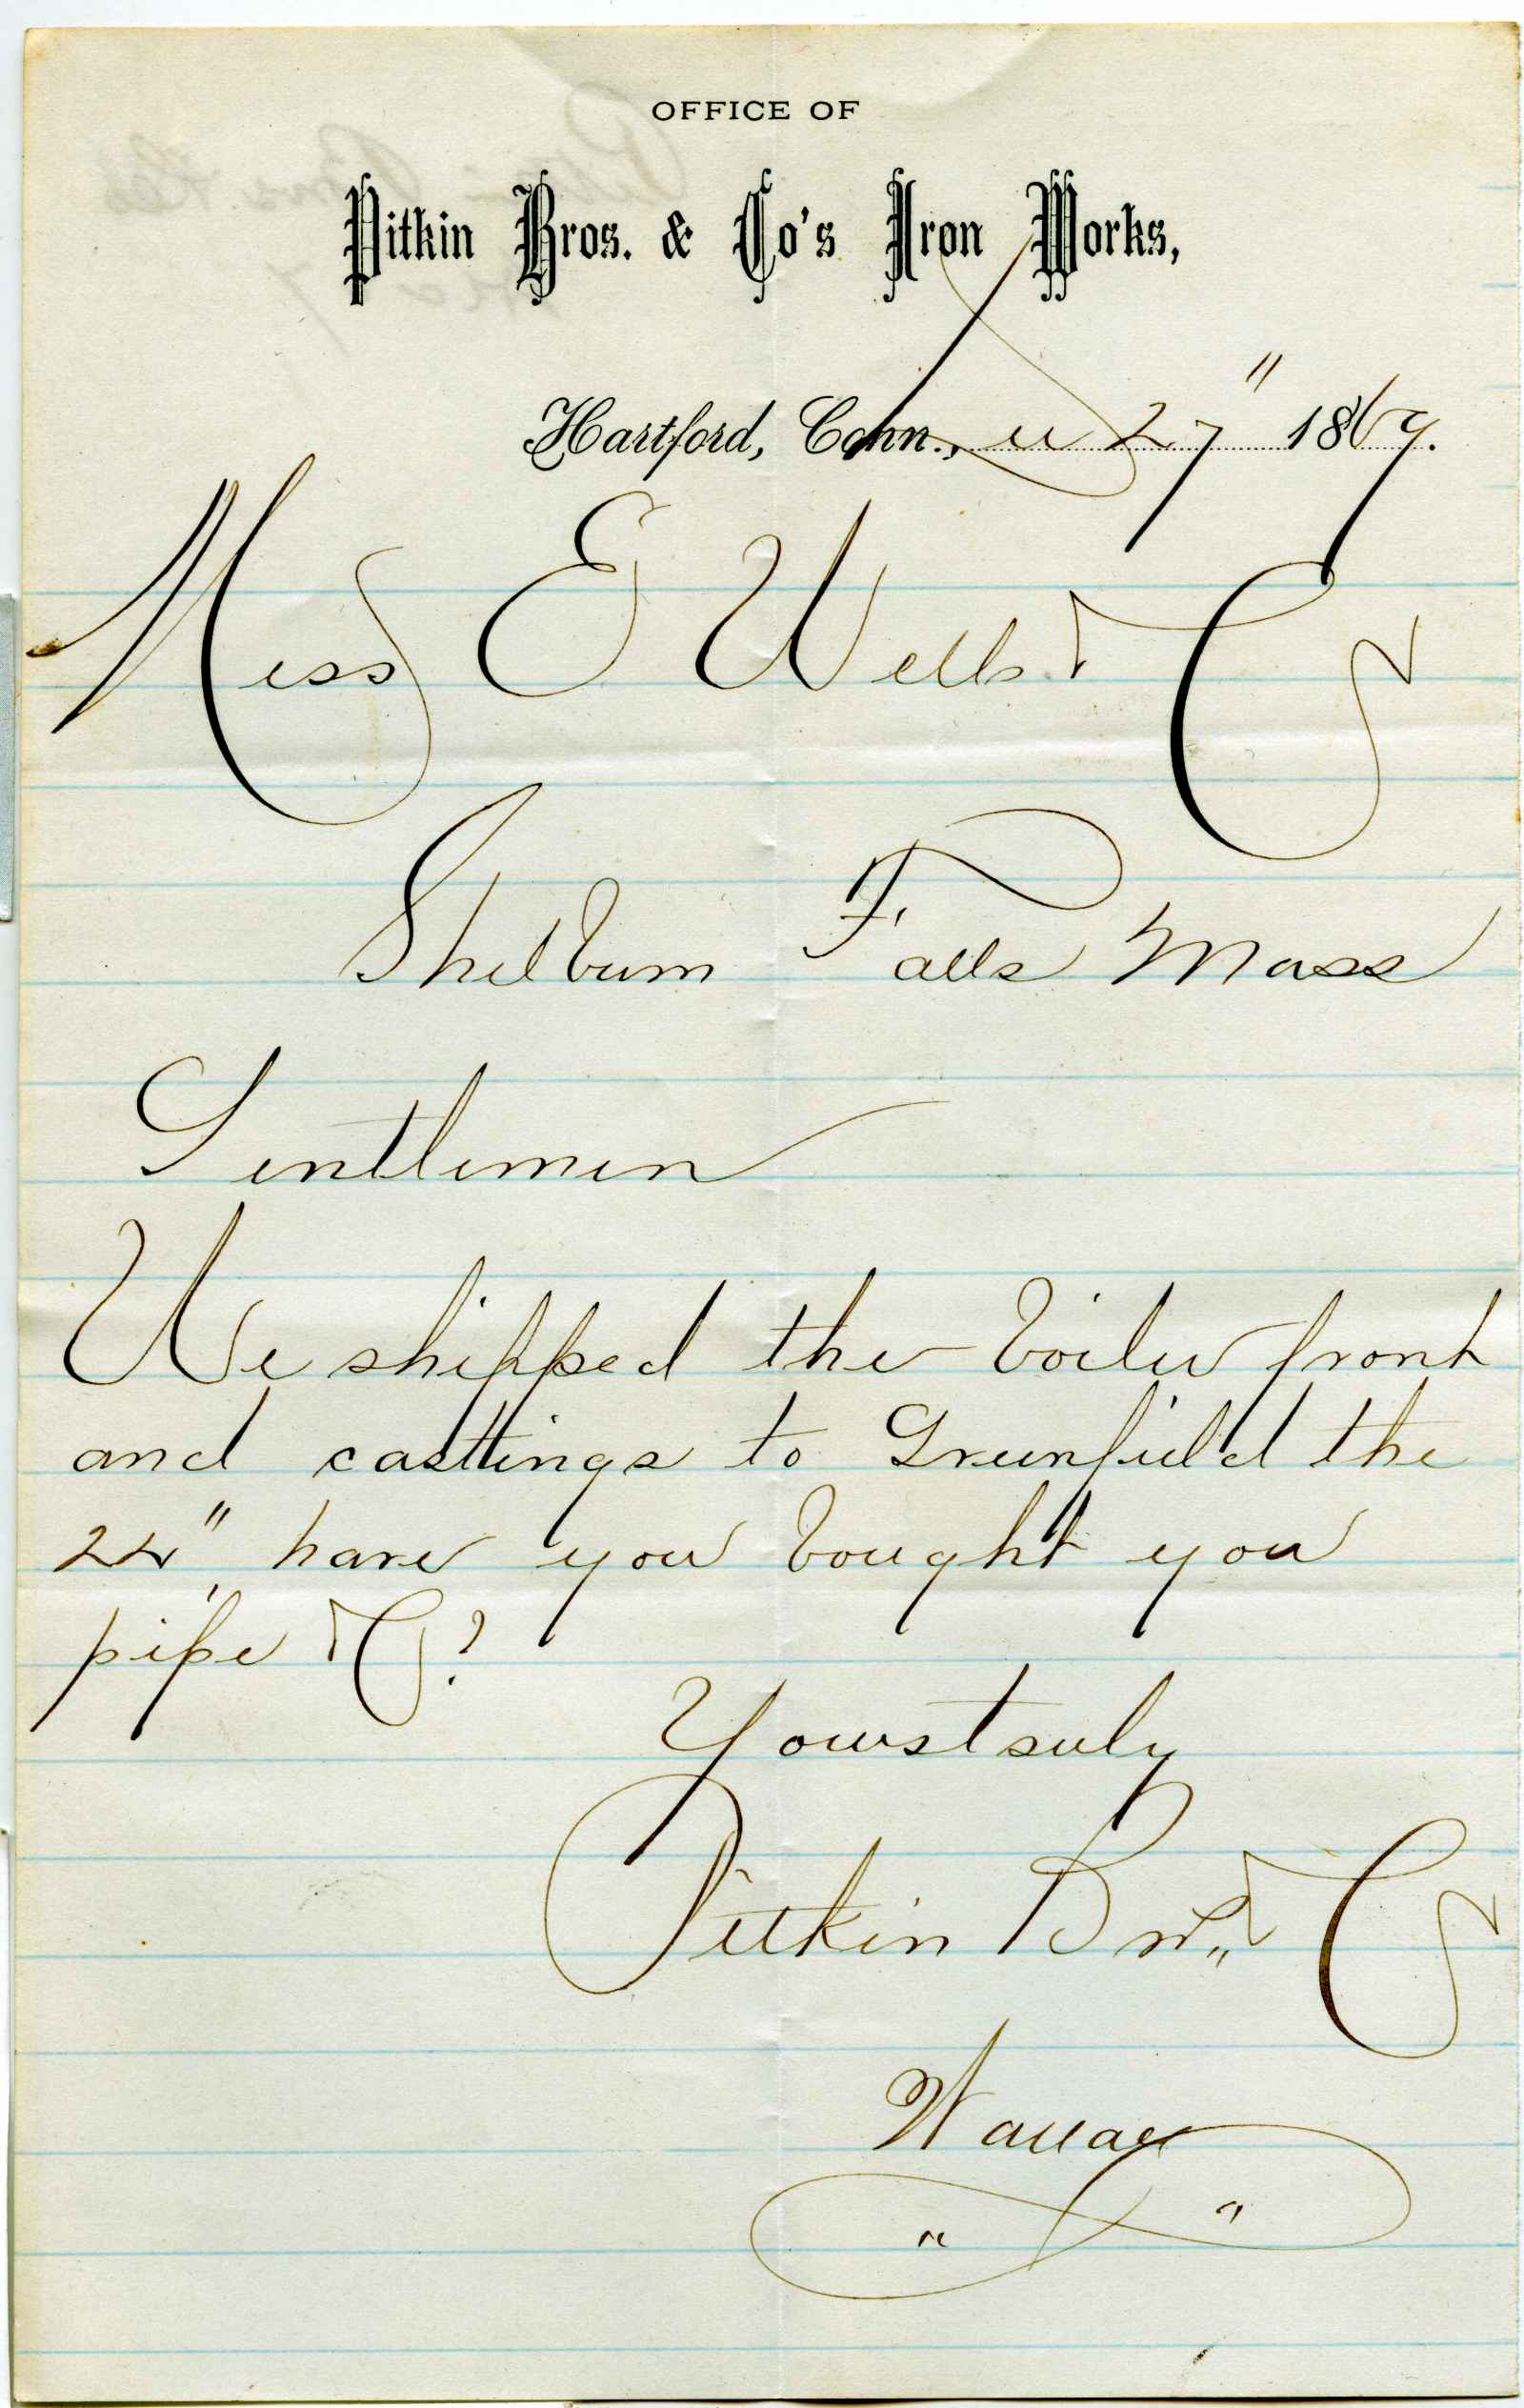 OFFICE OF
Pitkin Bros. & Co's Iron Works,
Hartford, Conn., 27" 1869.
Mess E Wells & Co
Shelburn Falls Mass
Gentlemen
We shipped the boiler front
and casttings to Greenfield the
24", have you bought you
pipe &C?
Yours truly
Pitkin Bros. & Co
Wallace